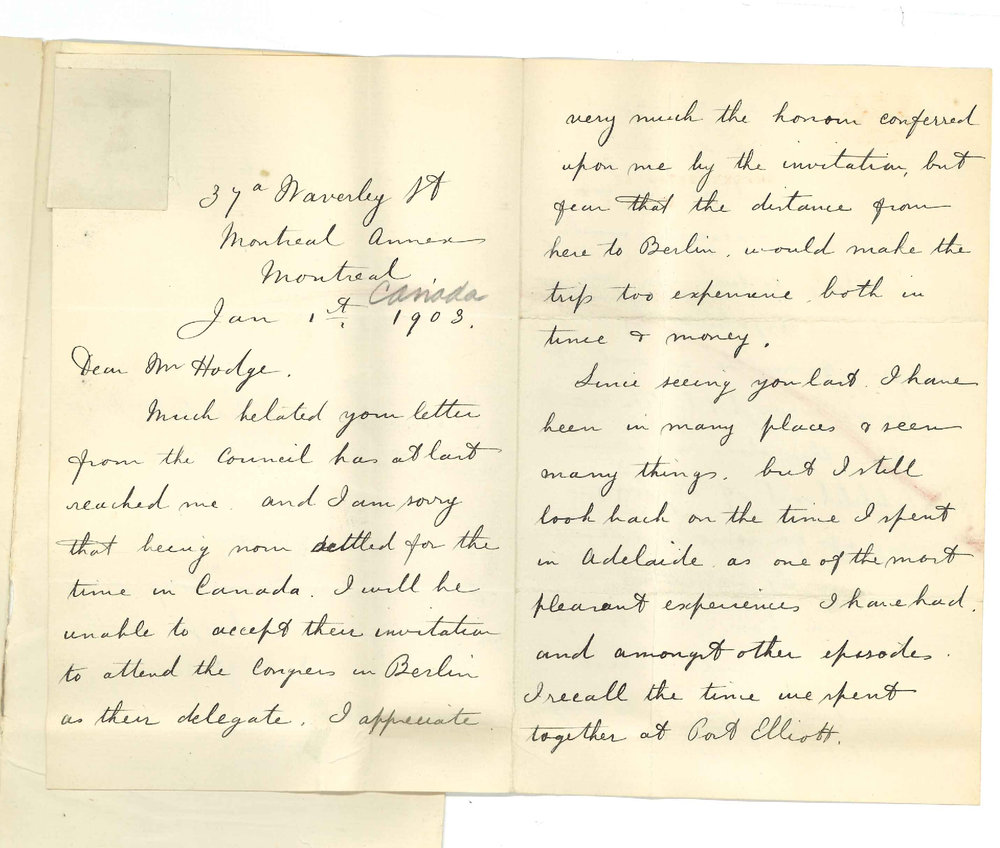 37a Waverley St
Montreal Annex
Montreal
Canada
Jan 1st 1903.
Dear Mr Hodge.
Much belated your letter
from the Council has at last
reached me. and I am sorry
that being now settled for the
time in Canada. I will be
unable to accept their invitation
to attend the Congress in Berlin
as their delegate. I appreciate
very much the honour conferred
upon me by the invitation, but
fear that the distance from
here to Berlin, would make the
trip too expensive, both in
time & money.
Since seeing you last. I have
been in many places & seen
many things. but I still
look back on the time I spent
in Adelaide. as one of the most
pleasant experiences I have had.
and amongst other episodes.
I recall the time we spent
together at Port Elliott.